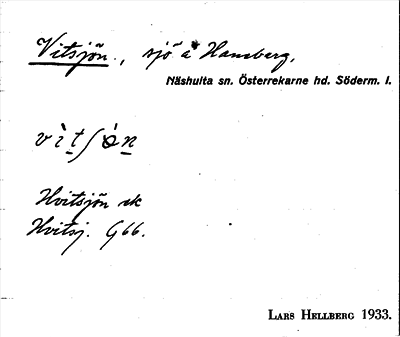 Vitsjön., sjö å Hansberg.
Näshulta sn. Österrekarne hd. Söderm. l.
vìtʃón
Hvitsjön ek
Hvitsj. G66.
LARS HELLBERG 1933.